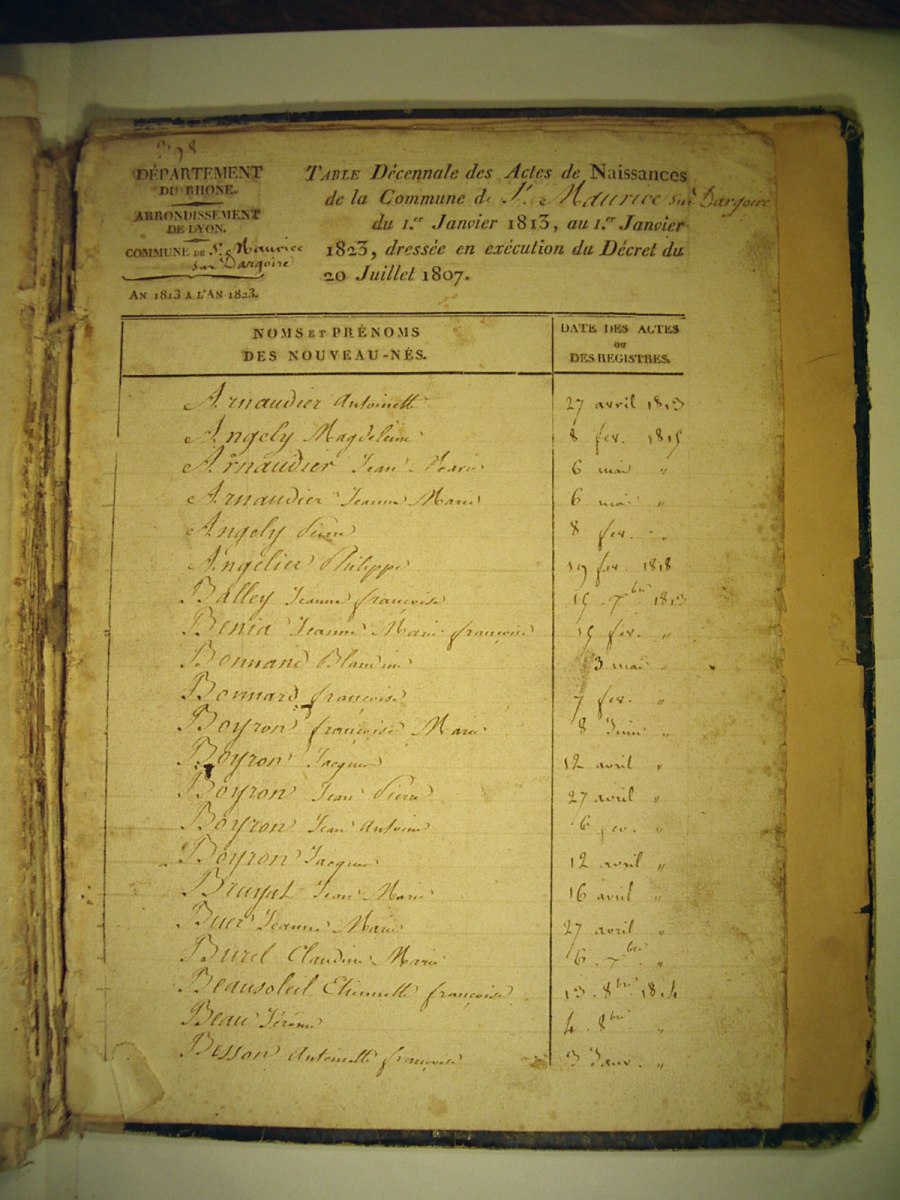 DÉPARTEMENT
DU RHONE.
ARRONDISSEMENT
DE LYON.
COMMUNE DE St. Maurice
sur Dargoire
AN 1813 A L'AN 1823.
TABLE Décennale des Actes de Naissances
de la Commune de St. Maurice sur Dargoire
du 1.er Janvier 1813, au 1.er Janvier
1823, dressée en exécution du Décret du
20 Juillet 1807.
NOMS ET PRÉNOMS
DES NOUVEAU-NÉS.
DATE DES ACTES
OU
DES REGISTRES.
Arnaudier Antoinette 27 avril 1813
Angely Magdeleine 8 fev. 1815
Arnaudier Jean Marie 6 mai "
Arnaudier Jeanne Marie 6 mai "
Angely Pierre 8 fev. "
Angélier Philippe 19 fev. 1818
Balley Jeanne françoise 15 7bre 1813
Benia Jeanne Marie françoise 15 fev. "
Bonnand Blandine 3 mai "
Bonnard françoise 7 fev. "
Boyron françoise Marie 8 Juin "
Boyron Jacques 12 avril "
Boyron Jean Pierre 27 avril "
Boyron Jean Antoine 6 fev. "
Boyron Jacques 12 avril "
Bruyat Jean Marie 16 avril "
Buer Jeanne Marie 27 avril "
Burel Claudine Marie 6 7bre "
Beausoleil Etiennette françoise 13 8bre 1814
Beau Jérôme 4 8bre "
Besson Antoinette françoise 3 Janv. "